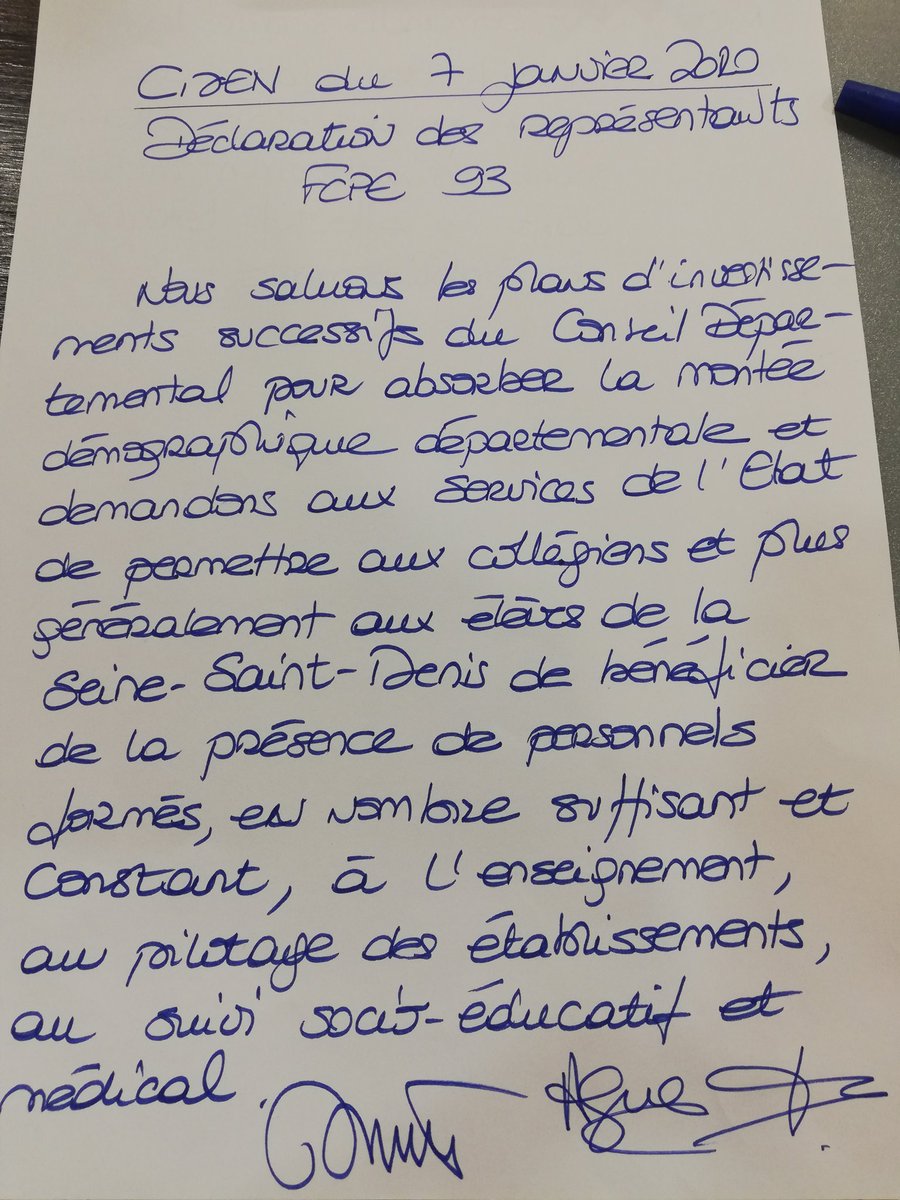 CDEN du 7 janvier 2020
Déclaration des représentants
FCPE 93
Nous saluons les plans d'investisse-
ments successifs du Conseil Dépar-
temental pour absorber la montée
démographique départementale et
demandons aux services de l'Etat
de permettre aux collégiens et plus
généralement aux élèves de la
Seine-Saint-Denis de bénéficier
de la présence de personnels
formés, en nombre suffisant et
constant, à l'enseignement,
au pilotage des établissements,
au suivi socio-éducatif et
médical.